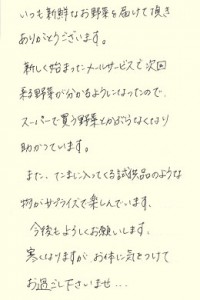 いつも新鮮なお野菜を届けて頂き
ありがとうございます。
新しく始まったメールサービスで次回
来る野菜が分かるようになったので、
スーパーで買う野菜とかぶらなくなり
助かっています。
また、たまに入ってくる試供品のような
物がサプライズで楽しんでいます。
今後もよろしくお願いします。
寒くなりますが お体に気をつけて
お過ごし下さいませ…